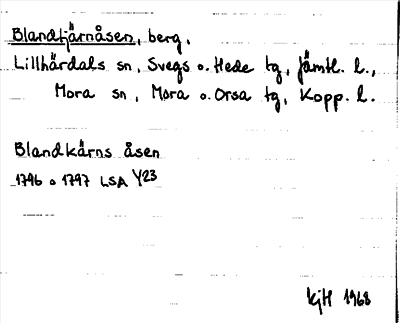 Blandtjärnåsen, berg,
Lillhärdals sn, Svegs o. Hede tg, Jämtl. l.,
Mora sn, Mora o. Orsa tg, Kopp. l.
Blandkärns åsen
1796 o 1797 LSA Y23
kjH 1968